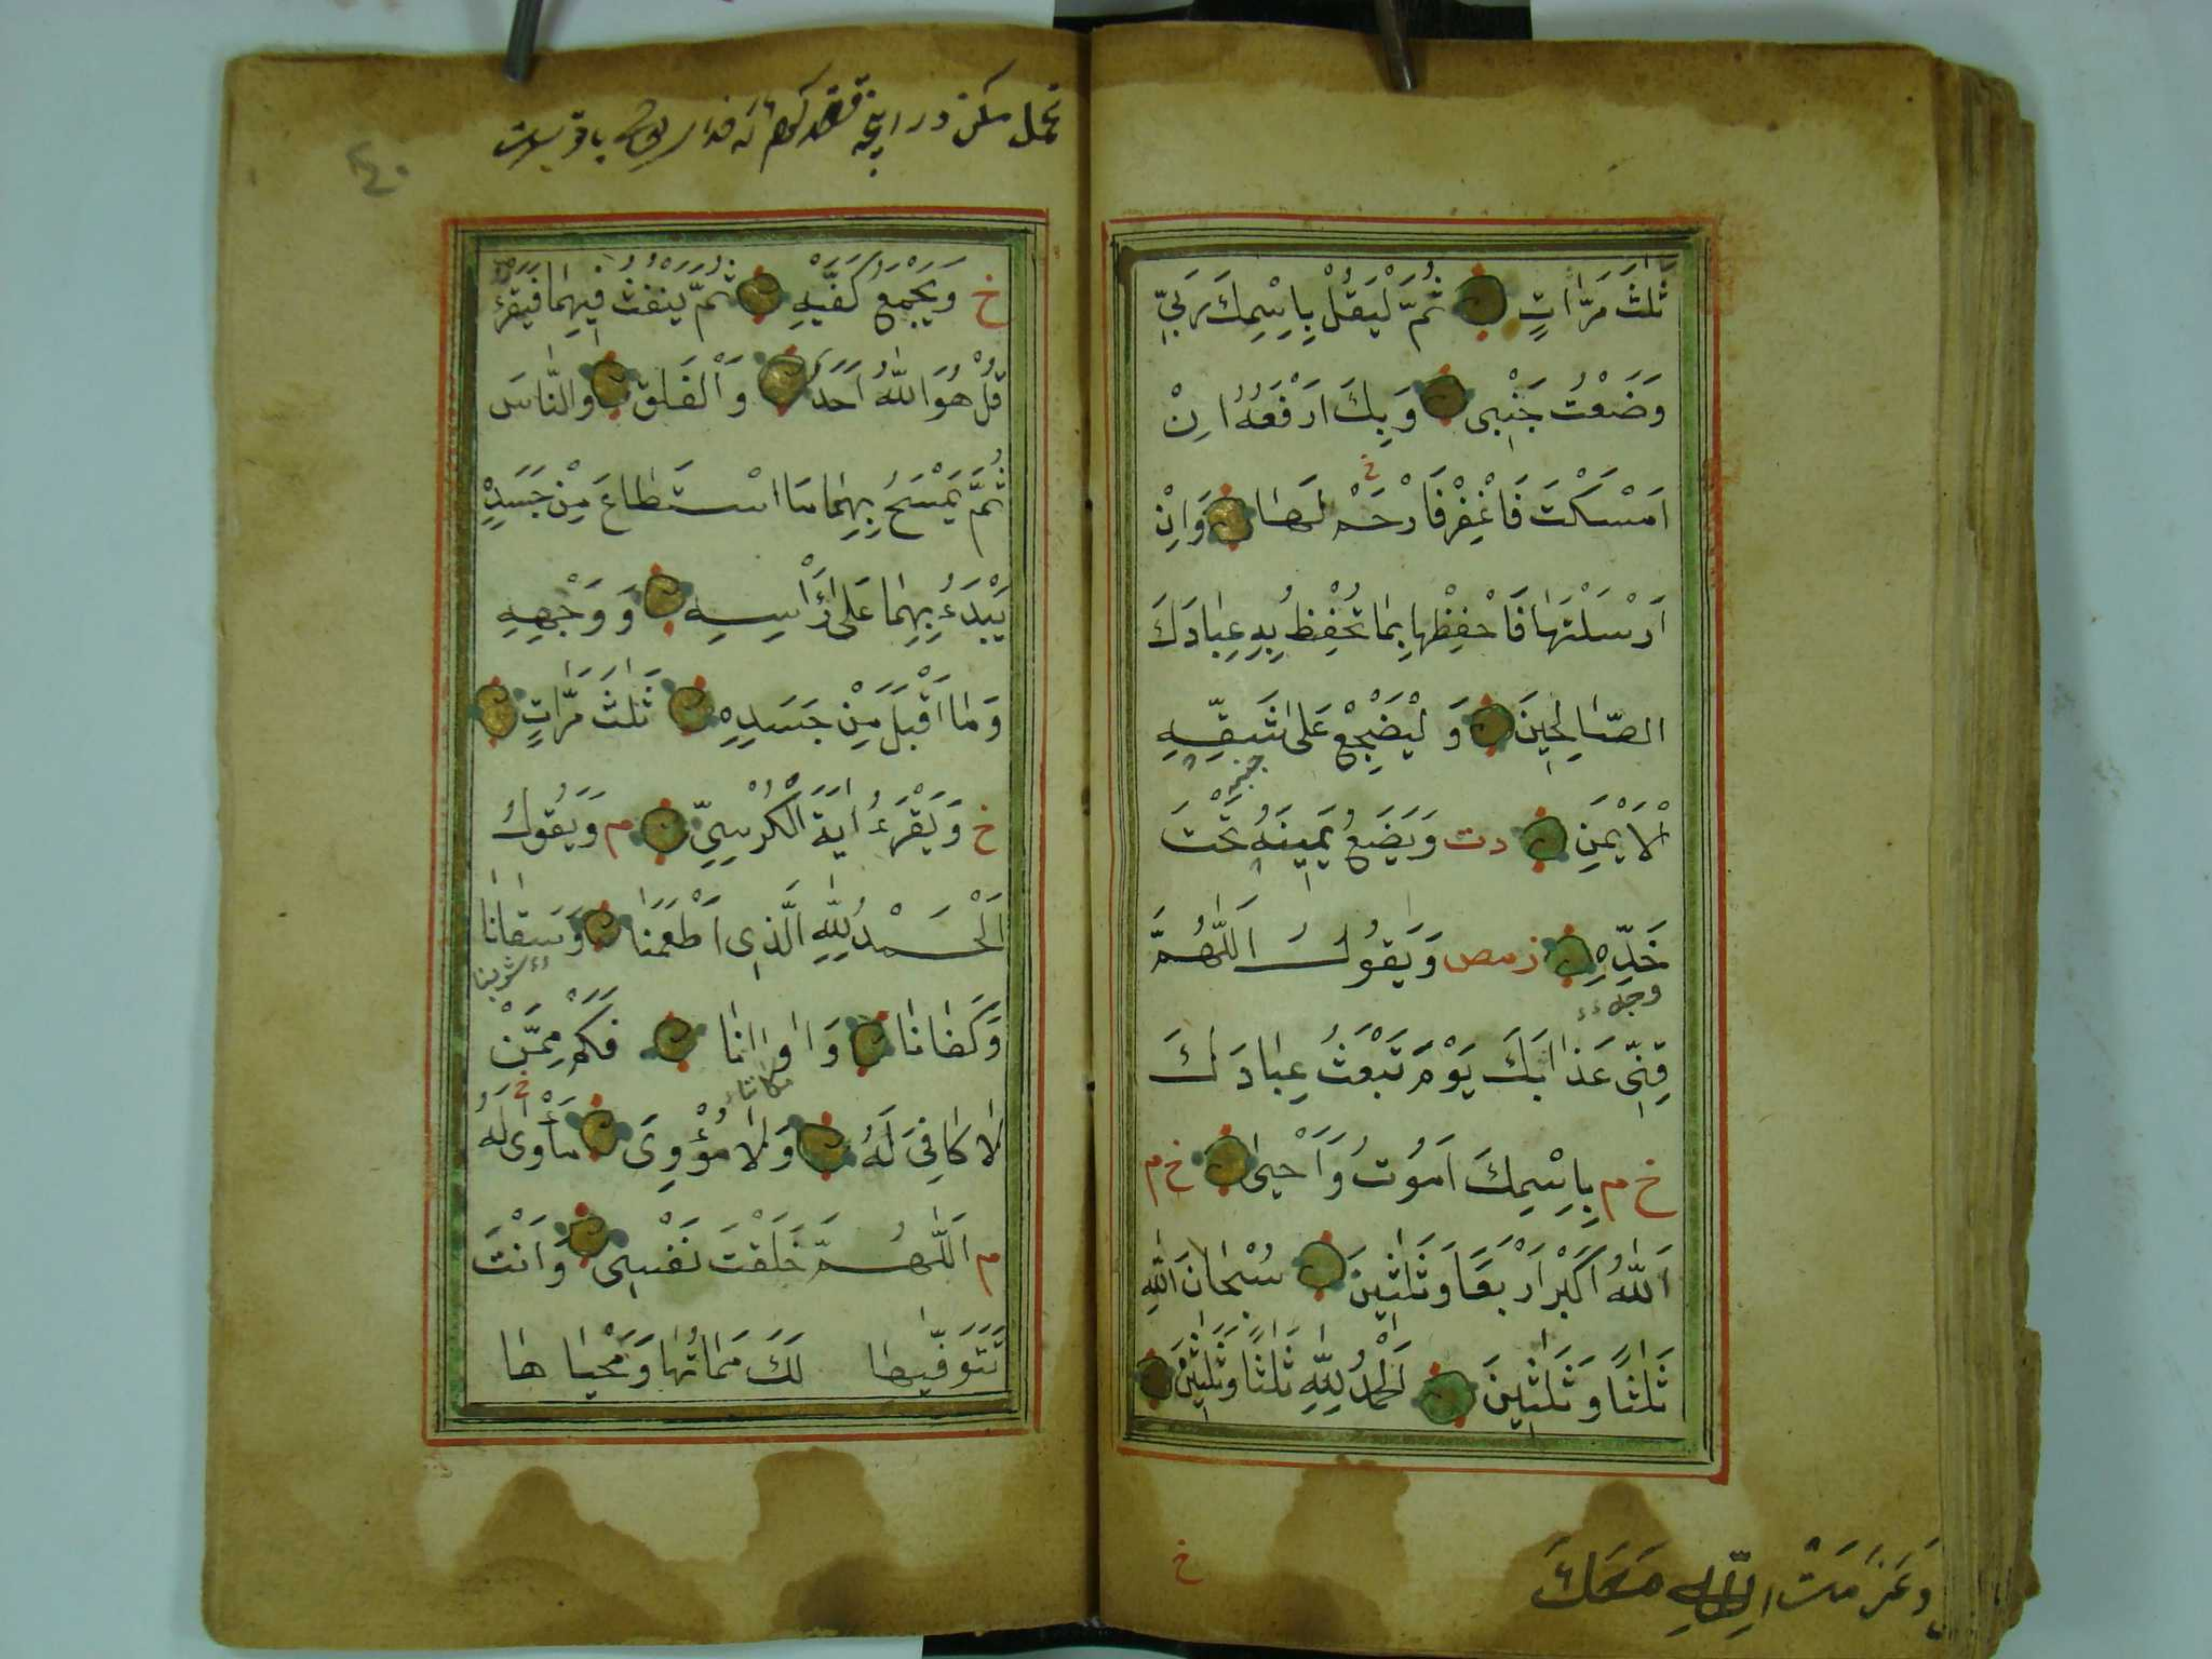 ثَلٰثَ مَرَّاتٍ ثُمَّ لْيَقُلْ بِاسْمِكَ رَبِّي
وَضَعْتُ جَنْبِى وَبِكَ اَرْفَعُهُ اِنْ
اَمْسَكْتَ فَاغْفِرْ فَارْحَمْ لَهَا وَاِنْ
خ
اَرْسَلْتَهَا فَاحْفَظْهَا بِمَا تَحْفَظُ بِهِ عِبَادَكَ
الصَّالِحِينَ وَلْيَضْجِعْ عَلٰى شَقِّهِ
جنبه
الْاَيْمَنِ دت وَيَضَعُ يَمِينَهُ تَحْتَ
خَدِّهِ زمص وَيَقُولُ اَللّٰهُمَّ
قِنِى عَذَابَكَ يَوْمَ تَبْعَثُ عِبَادَكَ
خ م بِاسْمِكَ اَمُوتُ وَاَحْيٰى خ م
اَللّٰهُ اَكْبَرُ اَرْبَعًا وَثَلٰثِينَ سُبْحَانَ اللّٰهِ
ثَلٰثًا وَثَلٰثِينَ اَلْحَمْدُ لِلّٰهِ ثَلٰثًا وَثَلٰثِينَ
خ
مَعَكَ
تحمل مكن در
٤٠
خ وَيَجْمَعُ كَفَّيْهِ ثُمَّ يَنْفُثُ فِيهِمَا فَيَقْرَؤُ
قُلْ هُوَ اللّٰهُ اَحَدٌ وَالْفَلَقِ وَالنَّاسَ
ثُمَّ يَمْسَحُ بِهِمَا مَا اسْتَطَاعَ مِنْ جَسَدِهِ
يَبْدَءُ بِهِمَا عَلٰى رَأْسِهِ وَوَجْهِهِ
وَمَا اَقْبَلَ مِنْ جَسَدِهِ ثَلٰثَ مَرَّاتٍ
خ وَيَقْرَءُ اٰيَةَ الْكُرْسِيِّ م وَيَقُولُ
اَلْحَمْدُ لِلّٰهِ الَّذِى اَطْعَمَنَا وَسَقَانَا
وَكَفَانَا وَاٰوَانَا فَكَمْ مِمَّنْ
لَا كَافِىَ لَهُ وَلَا مُؤْوِىَ مَأْوٰى لَهُ
خ
م اَللّٰهُمَّ خَلَقْتَ نَفْسِى وَاَنْتَ
تَتَوَفّٰيهَا لَكَ مَمَاتُهَا وَمَحْيَاهَا